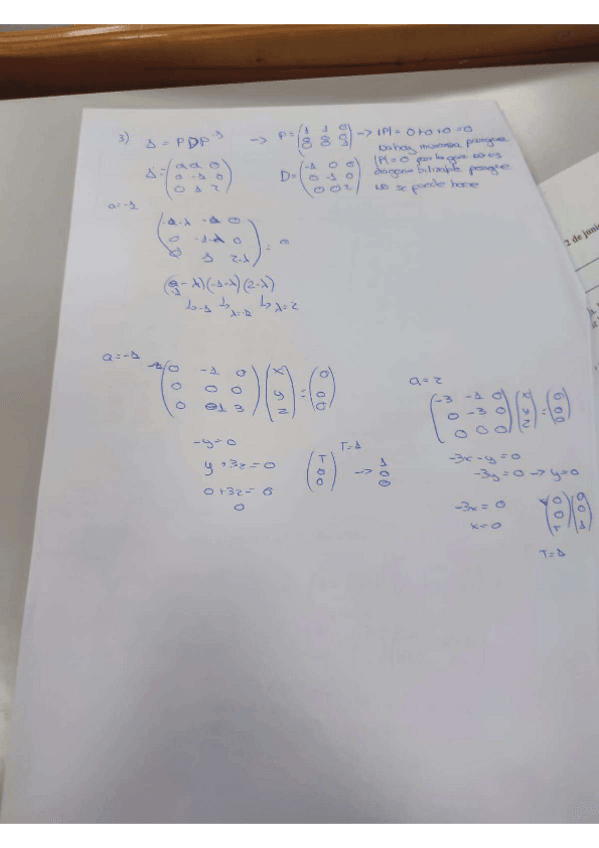 3) A = PDP⁻¹ → P = (1 1 0 / 0 0 0 / 0 0 1) → |P| = 0+0+0 = 0
No hay inversa porque
|P| = 0 por lo que no es
diagonalizable porque
no se puede hacer
A = (a a 0 / 0 -1 0 / 0 1 2) D = (-1 0 0 / 0 -1 0 / 0 0 2)
a=-1
(-1-λ -1 0 / 0 -1-λ 0 / 0 1 2-λ) = 0
(a-λ)(-1-λ)(2-λ)
↳-1 ↳λ=-1 ↳λ=2
a=-1
(0 -1 0 / 0 0 0 / 0 1 3)(x / y / z) = (0 / 0 / 0)
-y=0
y+3z=0
0+3z=0
0
(T / 0 / 0) T=1 → 1 0 0
a=2
(-3 -1 0 / 0 -3 0 / 0 0 0)(x / y / z) = (0 / 0 / 0)
-3x-y=0
-3y=0 → y=0
-3x=0
x=0
(0 / 0 / T)(0 / 0 / 1)
T=1
2 de juni